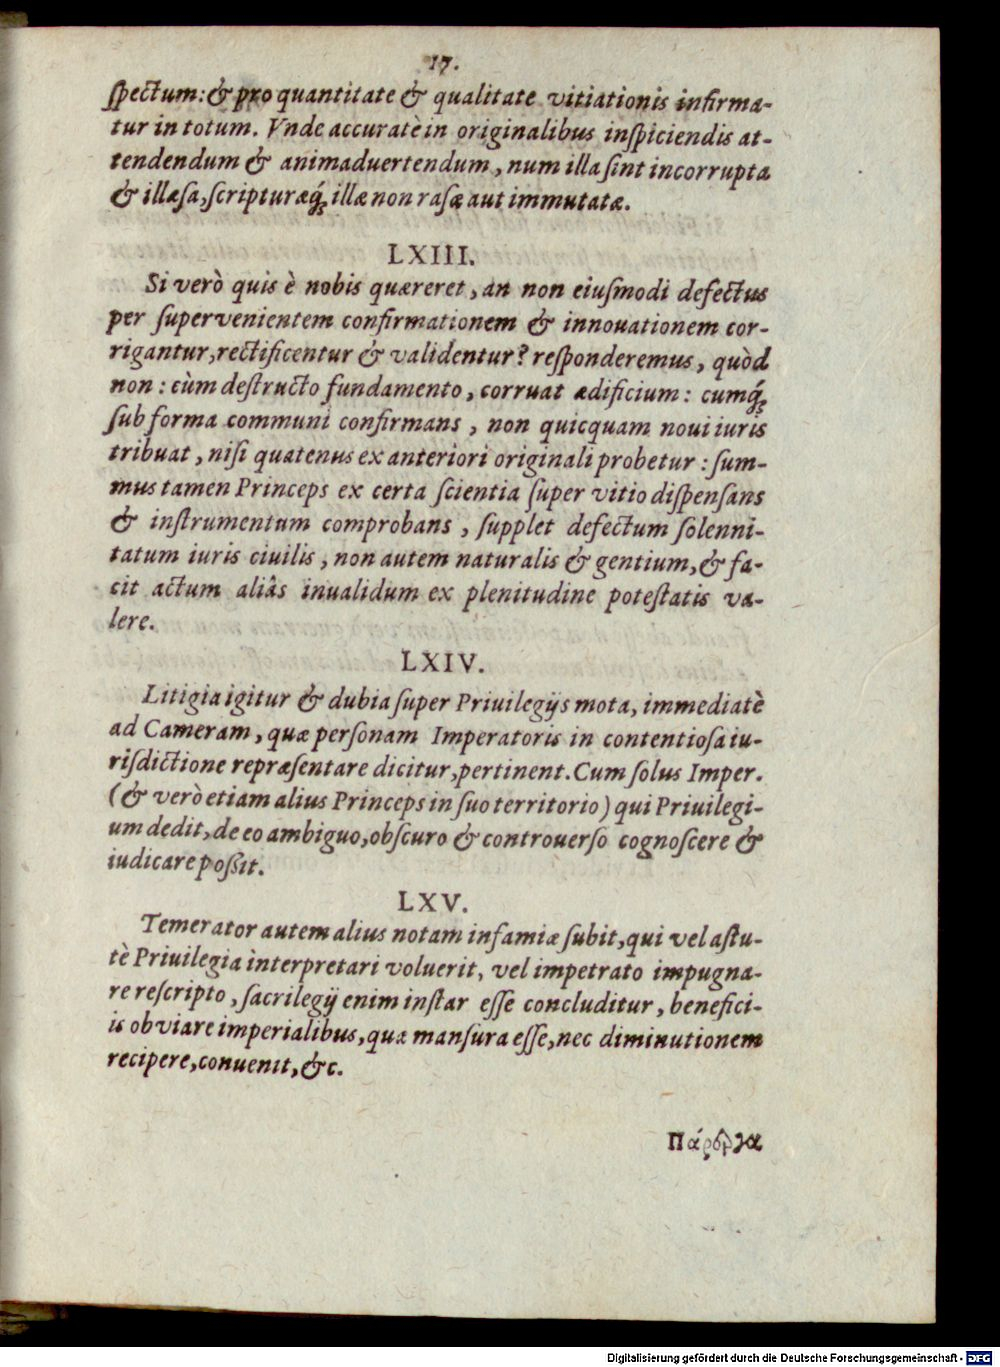 17.
spectum: & pro quantitate & qualitate vitiationis infirma-
tur in totum. Vnde accuratè in originalibus inspiciendis at-
tendendum & animaduertendum, num illa sint incorrupta
& illæsa, scripturæq́ꝫ illæ non rasæ aut immutatæ.
LXIII.
Si verò quis è nobis quæreret, an non eiusmodi defectus
per supervenientem confirmationem & innouationem cor-
rigantur, rectificentur & validentur? responderemus, quòd
non: cùm destructo fundamento, corruat ædificium: cumq́ꝫ
sub forma communi confirmans, non quicquam noui iuris
tribuat, nisi quatenus ex anteriori originali probetur: sum-
mus tamen Princeps ex certa scientia super vitio dispensans
& instrumentum comprobans, supplet defectum solenni-
tatum iuris civilis, non autem naturalis & gentium, & fa-
cit actum aliâs inualidum ex plenitudine potestatis va-
lere.
LXIV.
Litigia igitur & dubia super Priuilegijs mota, immediatè
ad Cameram, quæ personam Imperatoris in contentiosa iu-
risdictione repræsentare dicitur, pertinent. Cum solus Imper.
(& verò etiam alius Princeps in suo territorio) qui Priuilegi-
um dedit, de eo ambiguo, obscuro & controuerso cognoscere &
iudicare possit.
LXV.
Temerator autem alius notam infamiæ subit, qui vel astu-
tè Priuilegia interpretari voluerit, vel impetrato impugna-
re rescripto, sacrilegij enim instar esse concluditur, benefici-
is obviare imperialibus, quæ mansura esse, nec diminutionem
recipere, conuenit, &c.
Πάρεργα
Digitalisierung gefördert durch die Deutsche Forschungsgemeinschaft - DFG